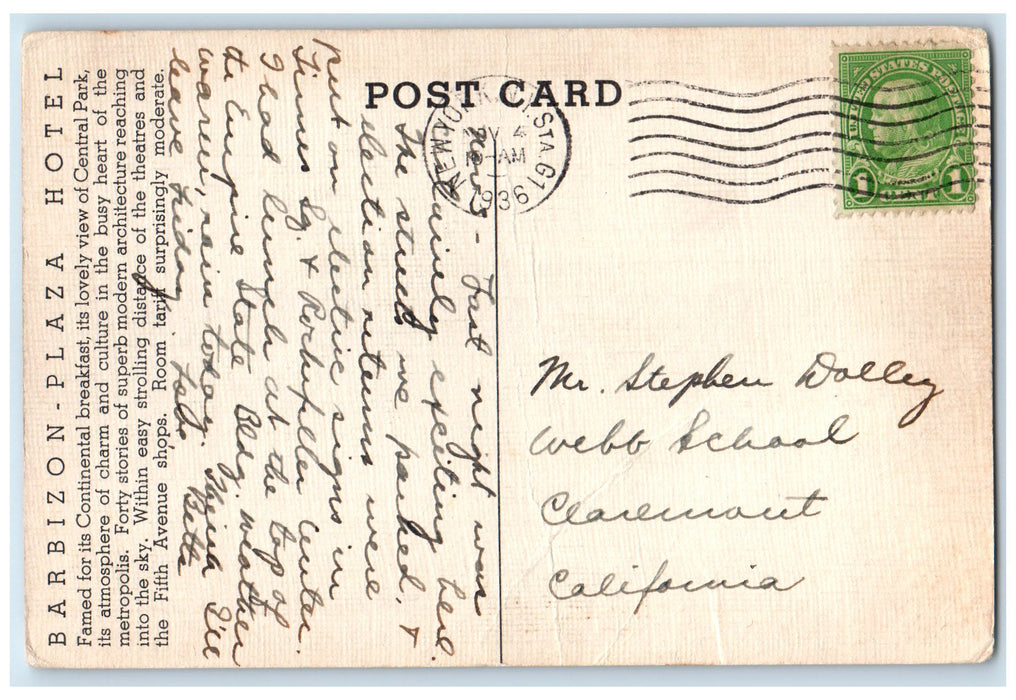 BARBIZON-PLAZA HOTEL
Famed for its Continental breakfast, its lovely view of Central Park,
its atmosphere of charm and culture in the busy heart of the
metropolis. Forty stories of superb modern architecture reaching
into the sky. Within easy strolling distance of the theatres and
the Fifth Avenue shops. Room tariff surprisingly moderate.
POST CARD
NEW YORK, N.Y. STA. G19
NOV 4
AM
1936
UNITED STATES POSTAGE
1 CENT 1
Nov. - Last night was
certainly exciting here.
The streets were packed, +
election returns were
put on electric signs in
Times Sq. + Rockefeller Center.
I had lunch at the top of
the Empire State Bldg. Weather
warm, rain today. Think I'll
leave Friday. Love
Mr. Stephen Dolley
Webb School
Claremont
California